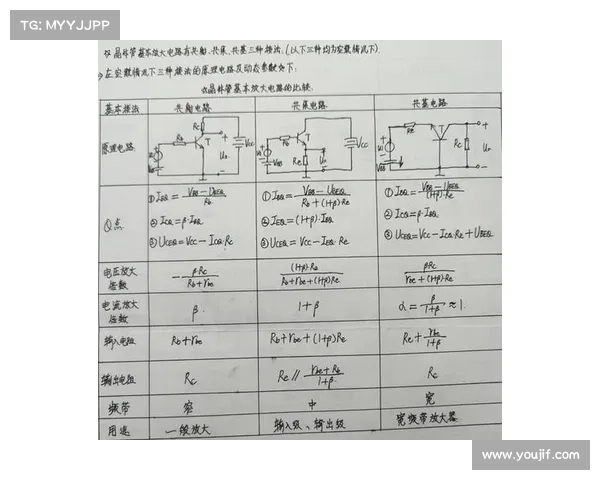 TG: MYYJJPP
☆晶体管基本放大电路有共射、共集、共基三种接法。(以下三种均为空载情况下).
⇒在空载情况下三种接法的原理电路及动态参数如下:
晶体管基本放大电路的比较.
基本接法 共射电路 共集电路 共基电路
原理电路
Rb Rc T + Uo - VCC ui VBB
Rb T Re + Uo - VCC ui VBB
Re T Rc + Uo - VCC ui VBB
Q点
①IBQ = (VBB-UBEQ)/Rb ①IBQ = (VBB-UBEQ)/(Rb+(1+β)Re) ①IBQ = (VBB-UBEQ)/((1+β)Re)
②ICQ=β·IBQ ②IEQ=(1+β)·IBQ ②ICQ=β·IBQ
③UCEQ=VCC-ICQ·Rc ③UCEQ=VCC-IEQ·Re ③UCEQ=VCC-ICQ·Rc+UBEQ
电压放大倍数 -βRc/(Rb+rbe) (1+β)Re/(Rb+rbe+(1+β)Re) βRc/(rbe+(1+β)Re)
电流放大倍数 β 1+β α=β/(1+β)≈1
输入电阻 Rb+rbe Rb+rbe+(1+β)Re Re+rbe/(1+β)
输出电阻 Rc Re∥(rbe+Rb)/(1+β) Rc
频带 窄 中 宽
用途 一般放大 输入级、输出级 宽频带放大器
www.youjif.com